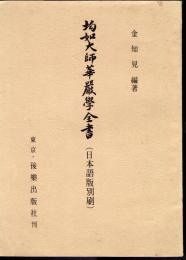 金知見 編著
均如大師華嚴學全書
(日本語版別刷)
東京・後樂出版社刊